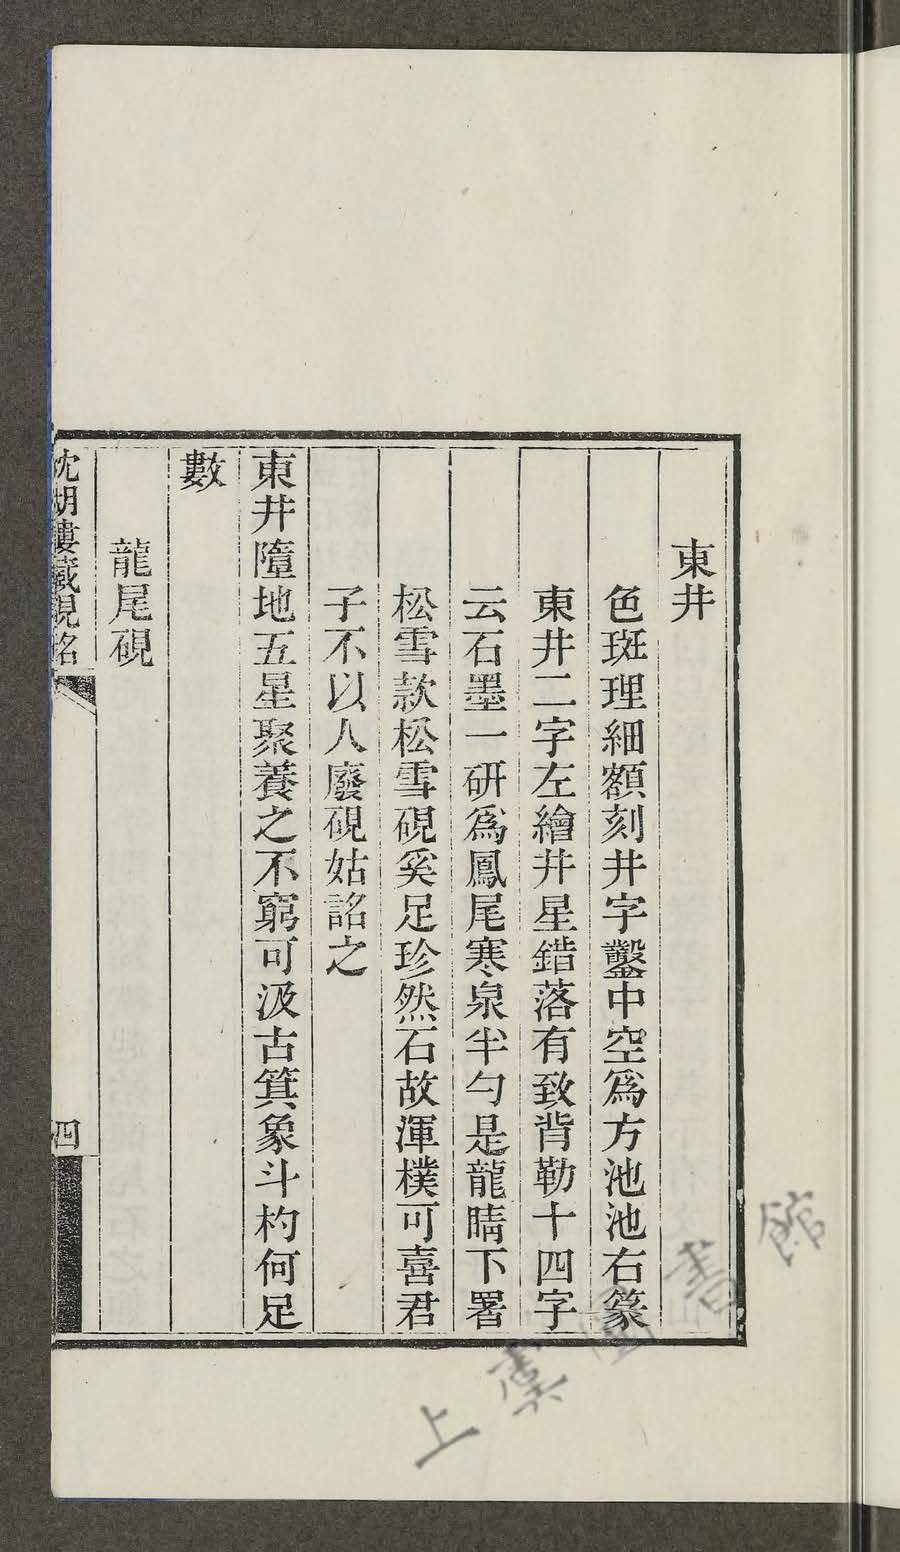 東井
色斑理細額刻井字鑿中空爲方池池右篆
東井二字左繪井星錯落有致背勒十四字
云石墨一研爲鳳尾寒泉半勺是龍睛下署
松雪款松雪硯奚足珍然石故渾樸可喜君
子不以人廢硯姑詺之
東井墮地五星聚養之不窮可汲古箕象斗杓何足
數
龍尾硯
沈湖樓藏硯銘
四
上虞圖書館